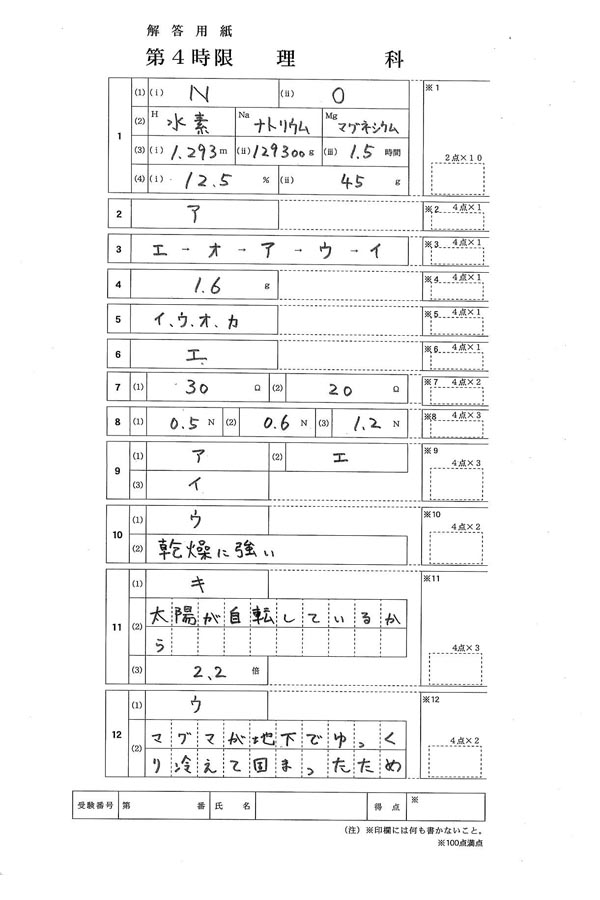 解答用紙
第4時限 理 科
1 (1) (i) N (ii) O ※1
(2) H 水素 Na ナトリウム Mg マグネシウム
(3) (i) 1.293 m (ii) 129300 g (iii) 1.5 時間 2点×10
(4) (i) 12.5 % (ii) 45 g
2 ア ※2 4点×1
3 エ → オ → ア → ウ → イ ※3 4点×1
4 1.6 g ※4 4点×1
5 イ、ウ、オ、カ ※5 4点×1
6 エ ※6 4点×1
7 (1) 30 Ω (2) 20 Ω ※7 4点×2
8 (1) 0.5 N (2) 0.6 N (3) 1.2 N ※8 4点×3
9 (1) ア (2) エ ※9 4点×3
(3) イ
10 (1) ウ ※10 4点×2
(2) 乾燥に強い
11 (1) キ ※11
(2) 太陽が自転しているか
ら 4点×3
(3) 2.2 倍
12 (1) ウ ※12 4点×2
(2) マグマが地下でゆっく
り冷えて固まったため
受験番号 第 番 氏名 得点 ※
(注) ※印欄には何も書かないこと。
※100点満点